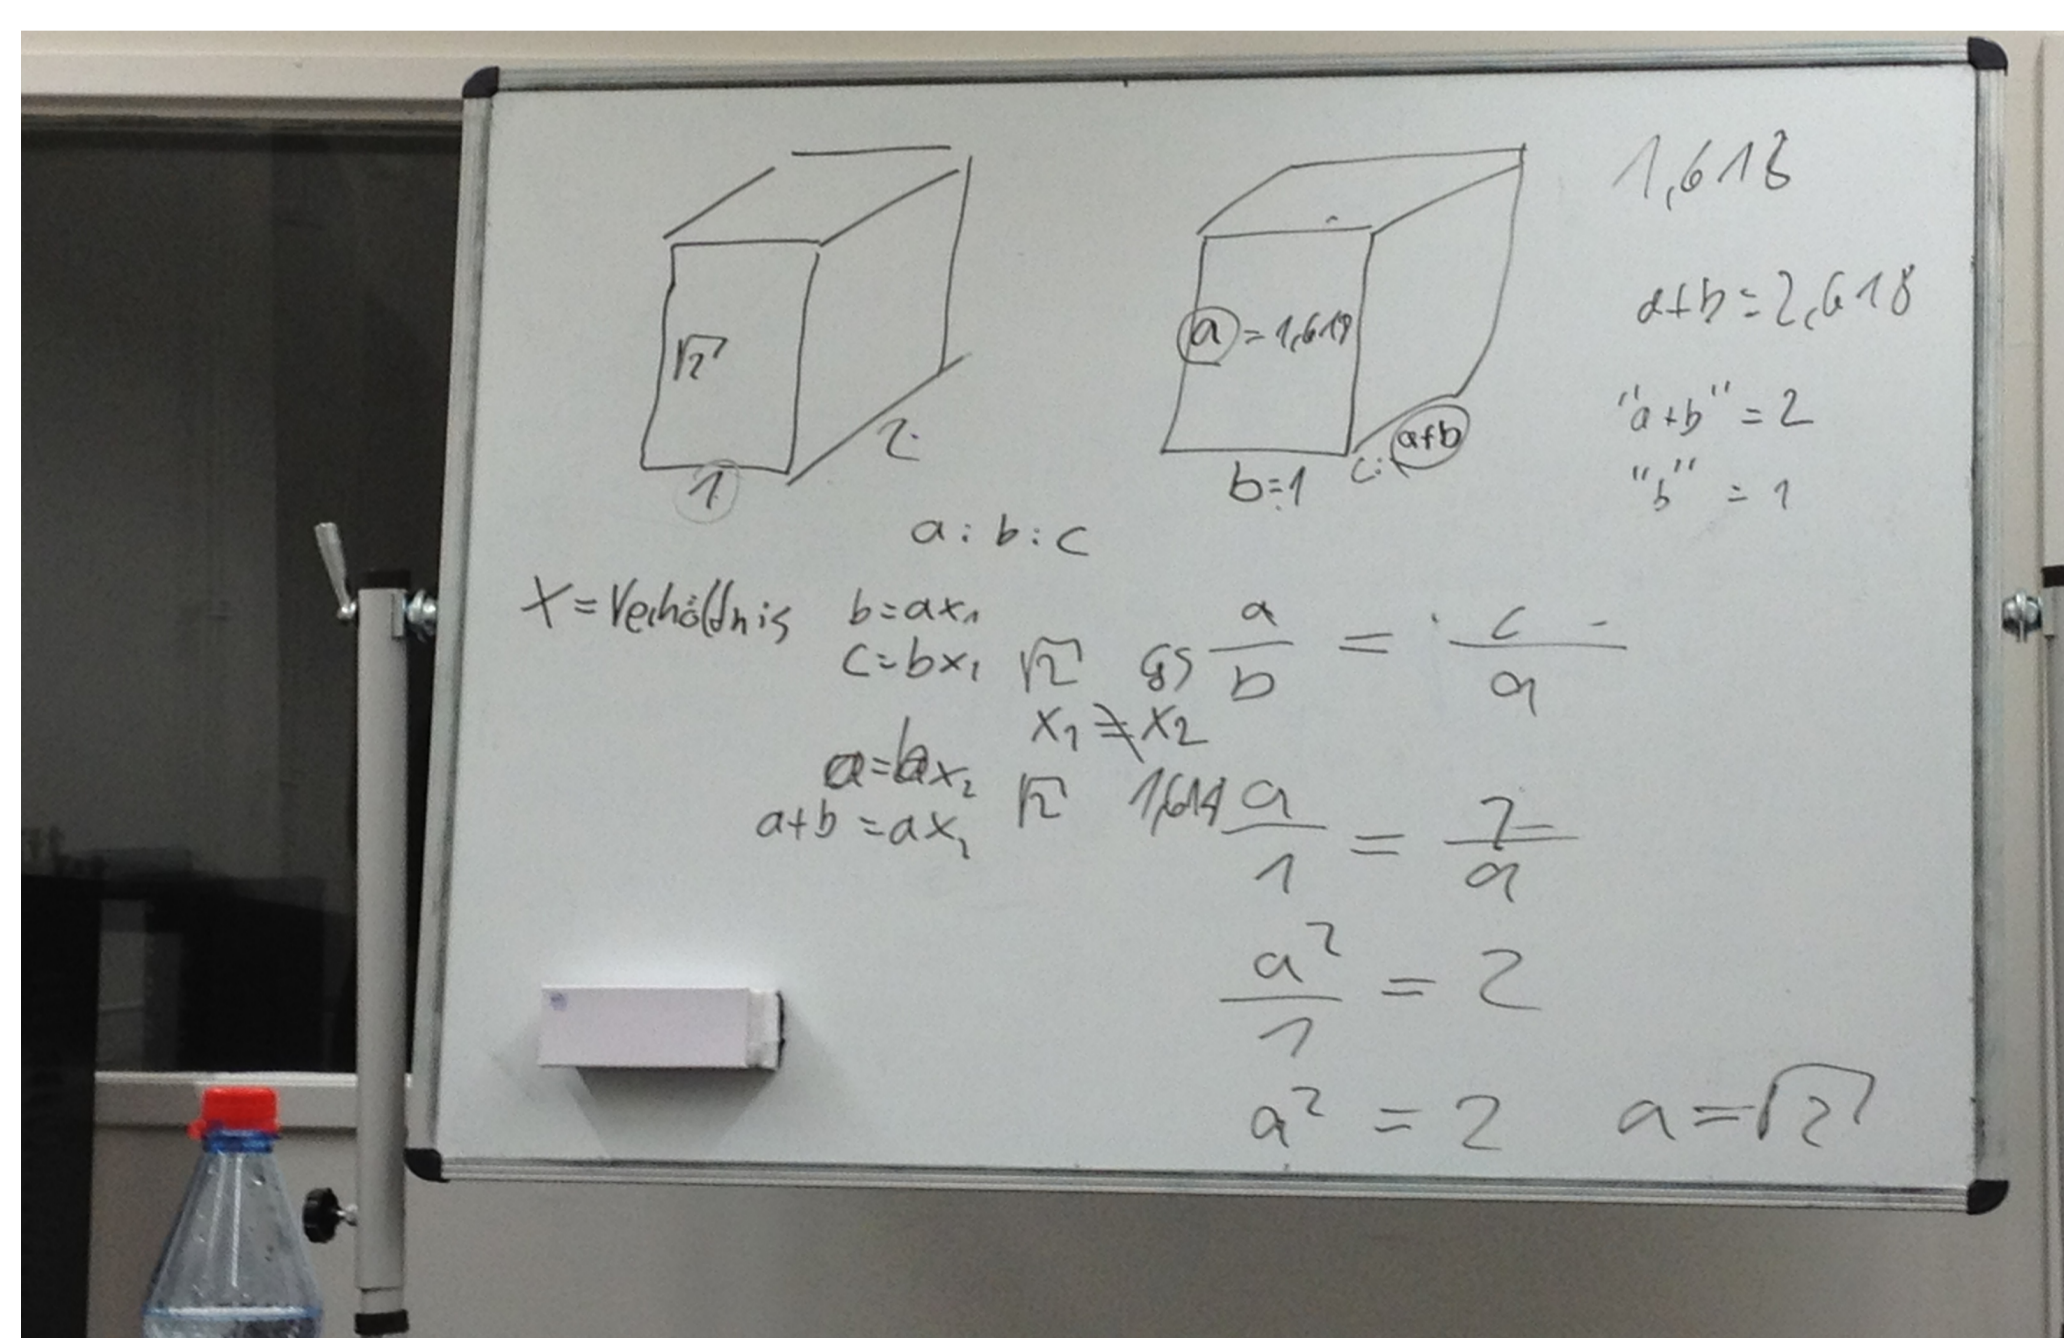 √2
1
2
a = 1,618
b=1
c: a+b
1,618
a+b = 2,618
"a+b" = 2
"b" = 1
a : b : c
X = Verhältnis
b = ax₁
c = bx₁ √2 GS
x₁ ≠ x₂
a = bx₂ √2
a+b = ax₂
a/b = c/a
a/1 = 2/a
a²/1 = 2
a² = 2 a = √2